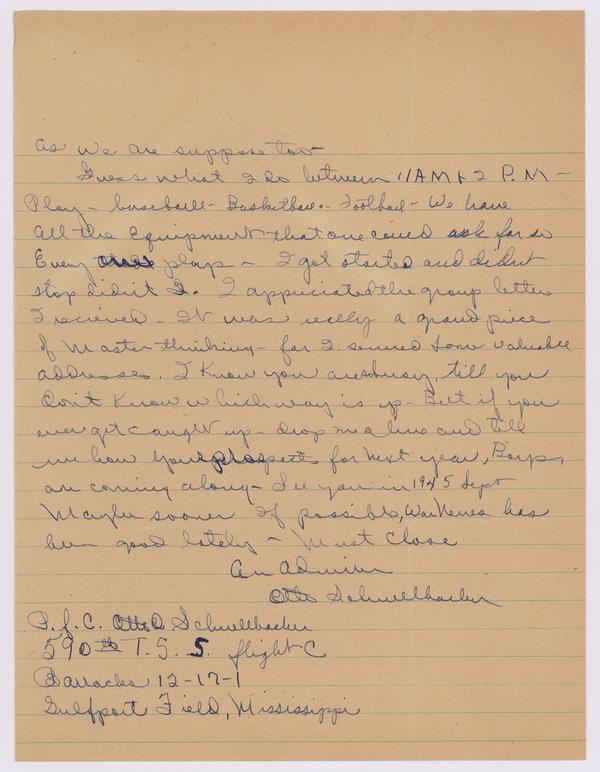 as we are suppose too-
Guess what I do between 11 AM & 2 P.M -
Play - baseball - Basketball - Football - We have
all the Equipment that one could ask for so
Every plays - I got started and didn't
stop didn't I. I appriciated the group letter
I recieved - It was really a grand piece
of Master-thinking - for I secured some valuable
addresses. I Know you are busy, till you
don't Know which way is up - But if you
ever get caught up - drop me a line and tell
me how your prospects for next year, Boys,
are coming along - See you in 1945 Sept
Maybe sooner if possible, War News has
been good lately - Must Close
An Admirer
Otto Schnellbacher
P.f.C. Otto O Schnellbacher
590th T.S.S. flight C
Barracks 12-17-1
Gulfport Field, Mississippi